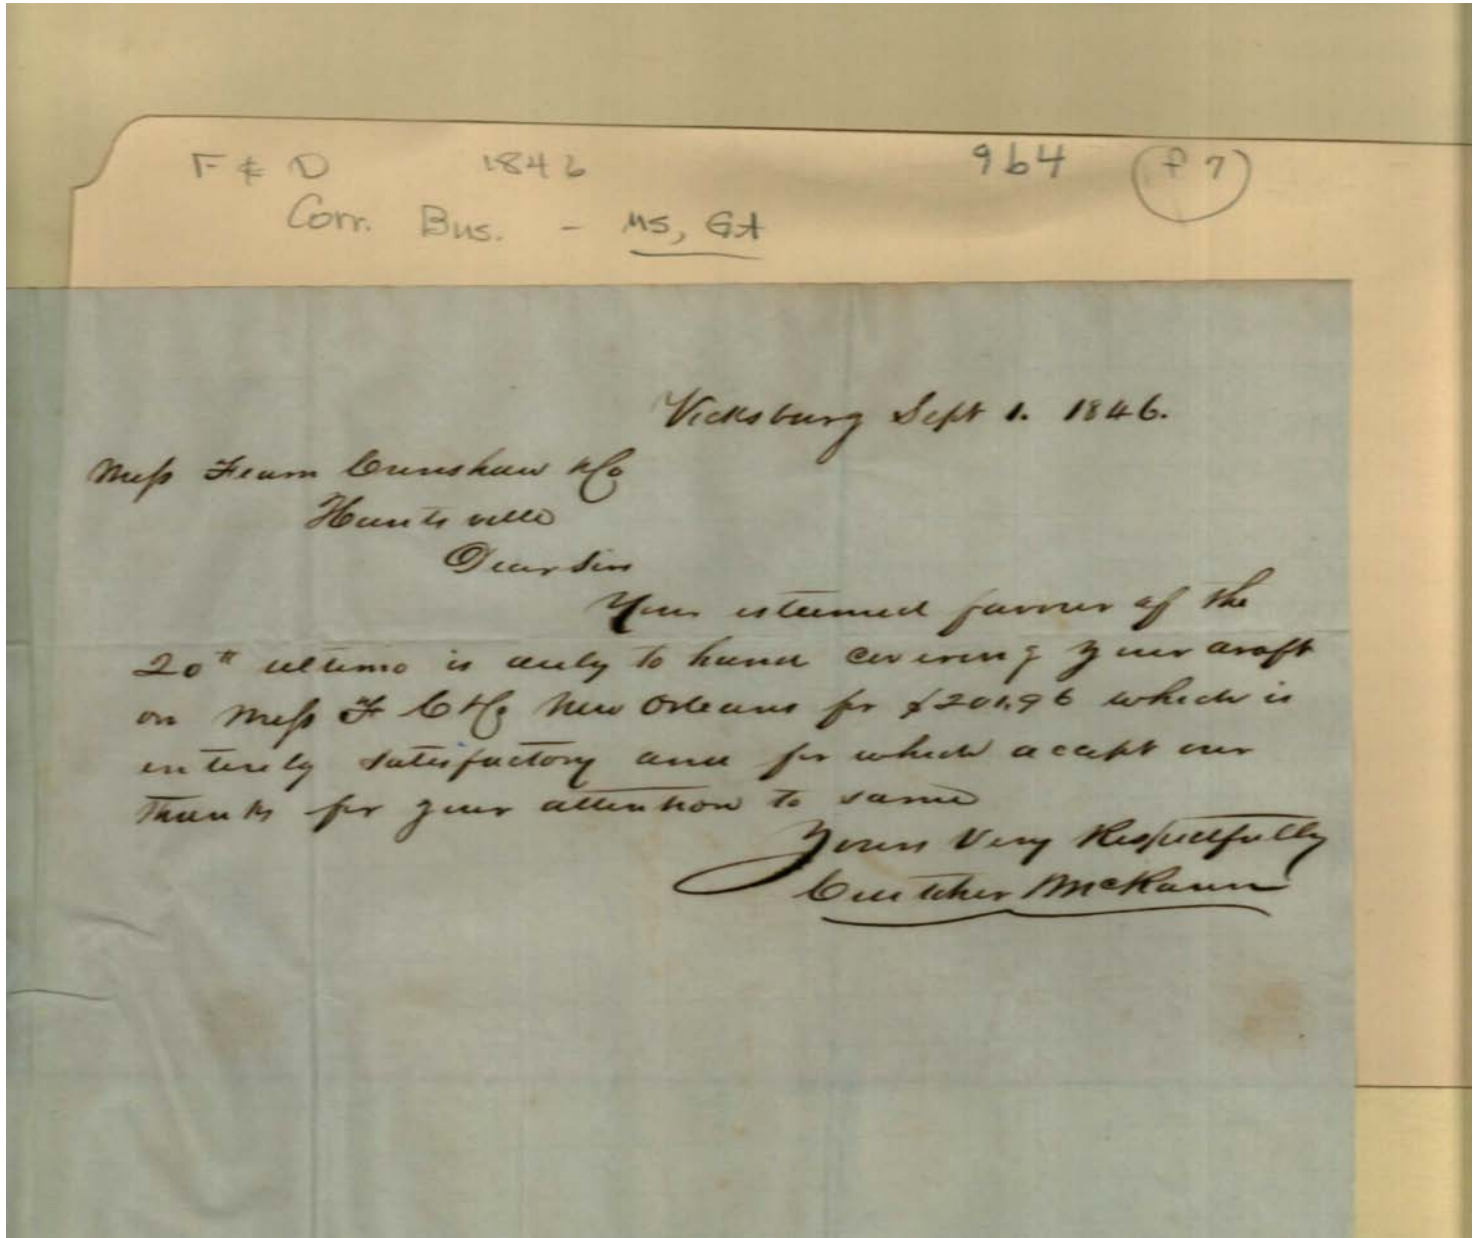 F & D 1846 964 f 7
Corr. Bus. - MS, GA
Vicksburg Sept 1. 1846.
Mess Fearn Crenshaw & Co
Huntsville
Dear Sirs
Your esteemed favour of the
20th ultimo is duly to hand covering your draft
on Mess F C & Co New Orleans for $201.96 which is
entirely satisfactory and for which accept our
thanks for your attention to same
Yours Very Respectfully
Cutcher McKann